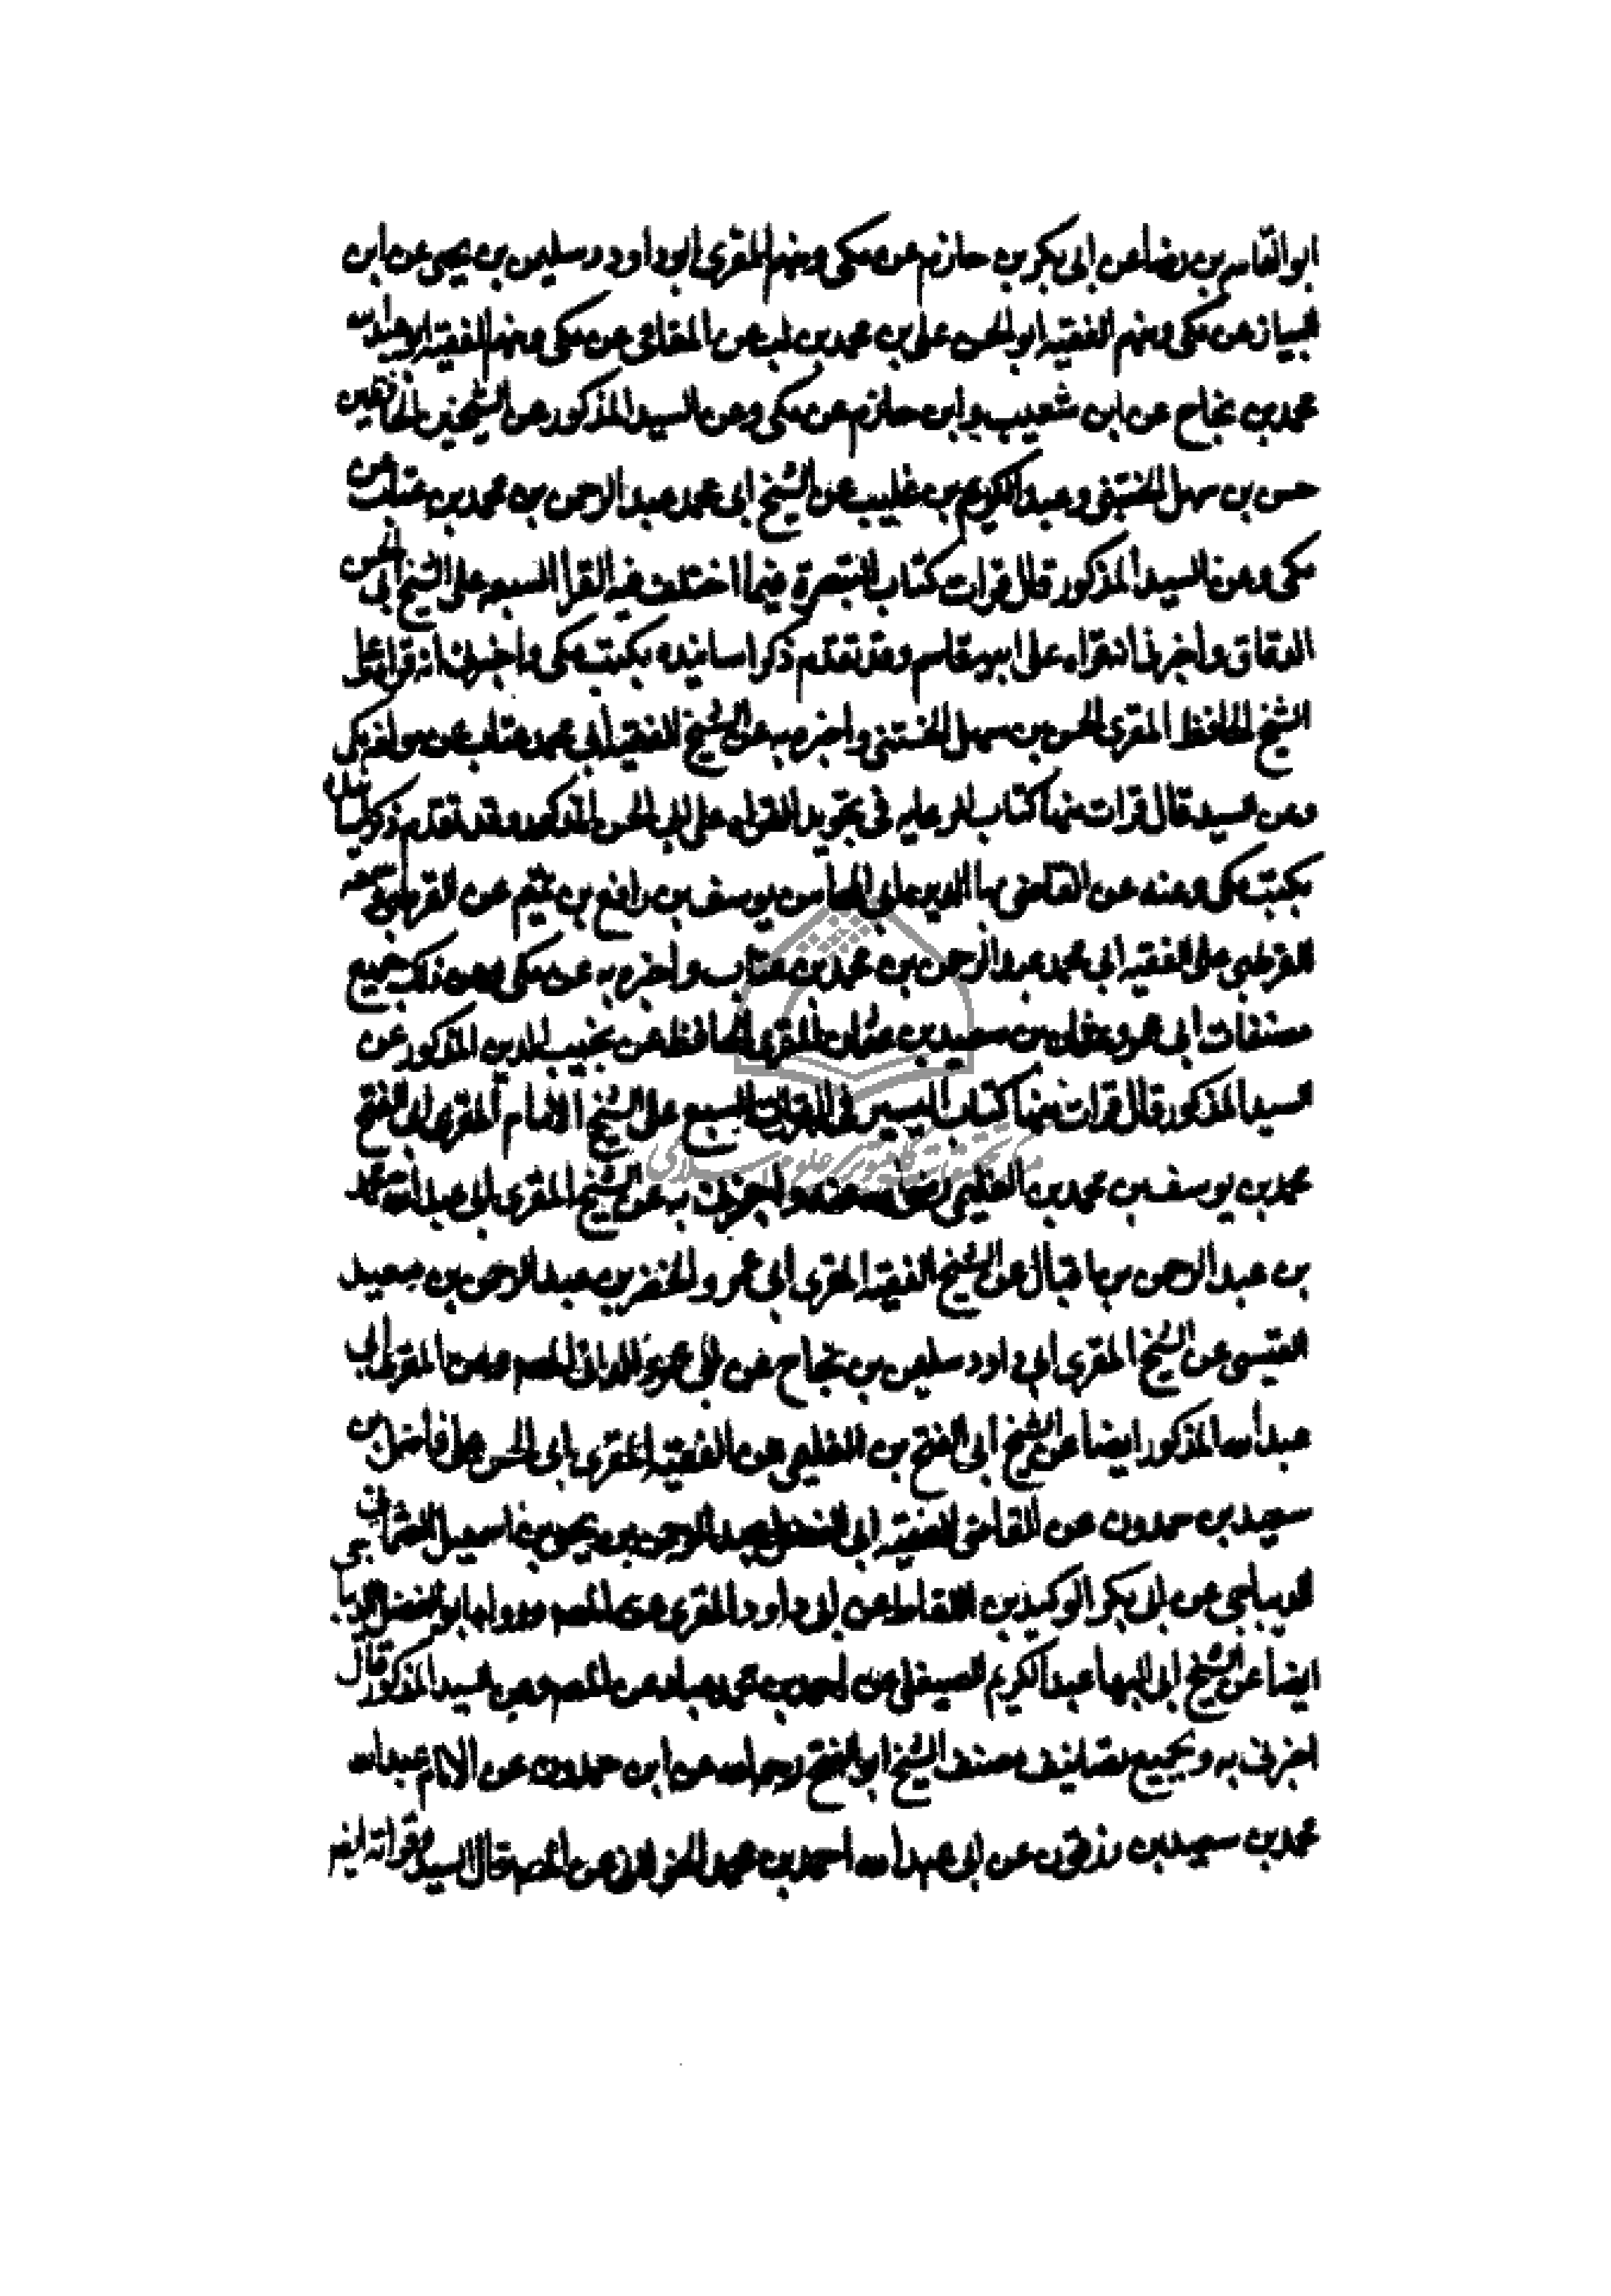 ابو القاسم بن رضا عن ابى بكر بن حازم عن مكى ومنهم المقرى ابو داود سليمن بن يحيى عن ابن
البياز عن مكى ومنهم الفقيه ابو الحسن على بن محمد بن لب عن المقامى عن مكى ومنهم الفقيه ابو عبد الله
محمد بن نجاح عن ابن شعيب وابن حازم عن مكى وعن السيد المذكور عن الشيخين الحافظين
حسن بن سهل الخشنى وعبد الكريم بن غليب عن الشيخ ابى محمد عبد الرحمن بن محمد بن عتاب عن
مكى وعن السيد المذكور قال قرات كتاب التبصرة فيما اختلف فيه القرا السبعه على الشيخ ابى الحسن
الدقاق واخبرنى انه قراه على ابن مقاسم وقد تقدم ذكر اسانيده بكتب مكى واخبرنى انه قراه على
الشيخ الحافظ المقرى الحسن بن سهل الخشنى واخبره به عن الشيخ الفقيه ابى محمد عتاب عن مولفه مكى
وعن السيد قال قرات منها كتاب الرعايه فى تجويد القراه على ابى الحسن المذكور وقد تقدم ذكر اسانيده
بكتب مكى وعنه عن القاضى بها الدين ابى المحاسن يوسف بن رافع بن تميم عن القرطبى سمعه
القرطبى على الفقيه ابى محمد عبد الرحمن بن محمد بن عتاب واخبره به عن مكى ومن ذلك جميع
مصنفات ابى عمرو عثمان بن سعيد بن عثمان المقرى الحافظ عن نجيب الدين المذكور عن
السيد المذكور قال قرات منها كتاب التيسير فى القراات السبع على الشيخ الامام المقرى ابى الفتح
محمد بن يوسف بن محمد بن العليمى رضى الله عنه واخبرنى به عن الشيخ المقرى ابى عبد الله محمد
بن عبد الرحمن بن اقبال عن الشيخ الفقيه المقرى ابى عمرو الخضر بن عبد الرحمن بن سعيد
القيسى عن الشيخ المقرى ابى داود سليمن بن نجاح عن ابى عمرو الدانى المصم وعن المقرى ابى
عبد الله المذكور ايضا عن الشيخ ابى الفتح بن العليمى عن الفقيه المقرى ابى الحسن على فاضل بن
سعيد بن حمدون عن القاضى الفقيه ابى الفضل عبد الرحمن بن يحيى بن اسمعيل العثمانى
الديباجى عن ابى بكر الوكيد بن اللقاط عن ابى داود المقرى عن المصم ورواها ابو الفضل الديباجى
ايضا عن الشيخ ابى البها عبد الكريم الصيقلى عن احمد بن عباد عن المصم وعن السيد المذكور قال
اخبرنى به وبجميع تصانيف مصنفه الشيخ ابو الفتح رحمه الله عن ابن حمدون عن الامام عبد الله
محمد بن سعيد بن زرقون عن ابى عبد الله احمد بن محمد الخولانى عن المصم قال السيد وقراته ايضا